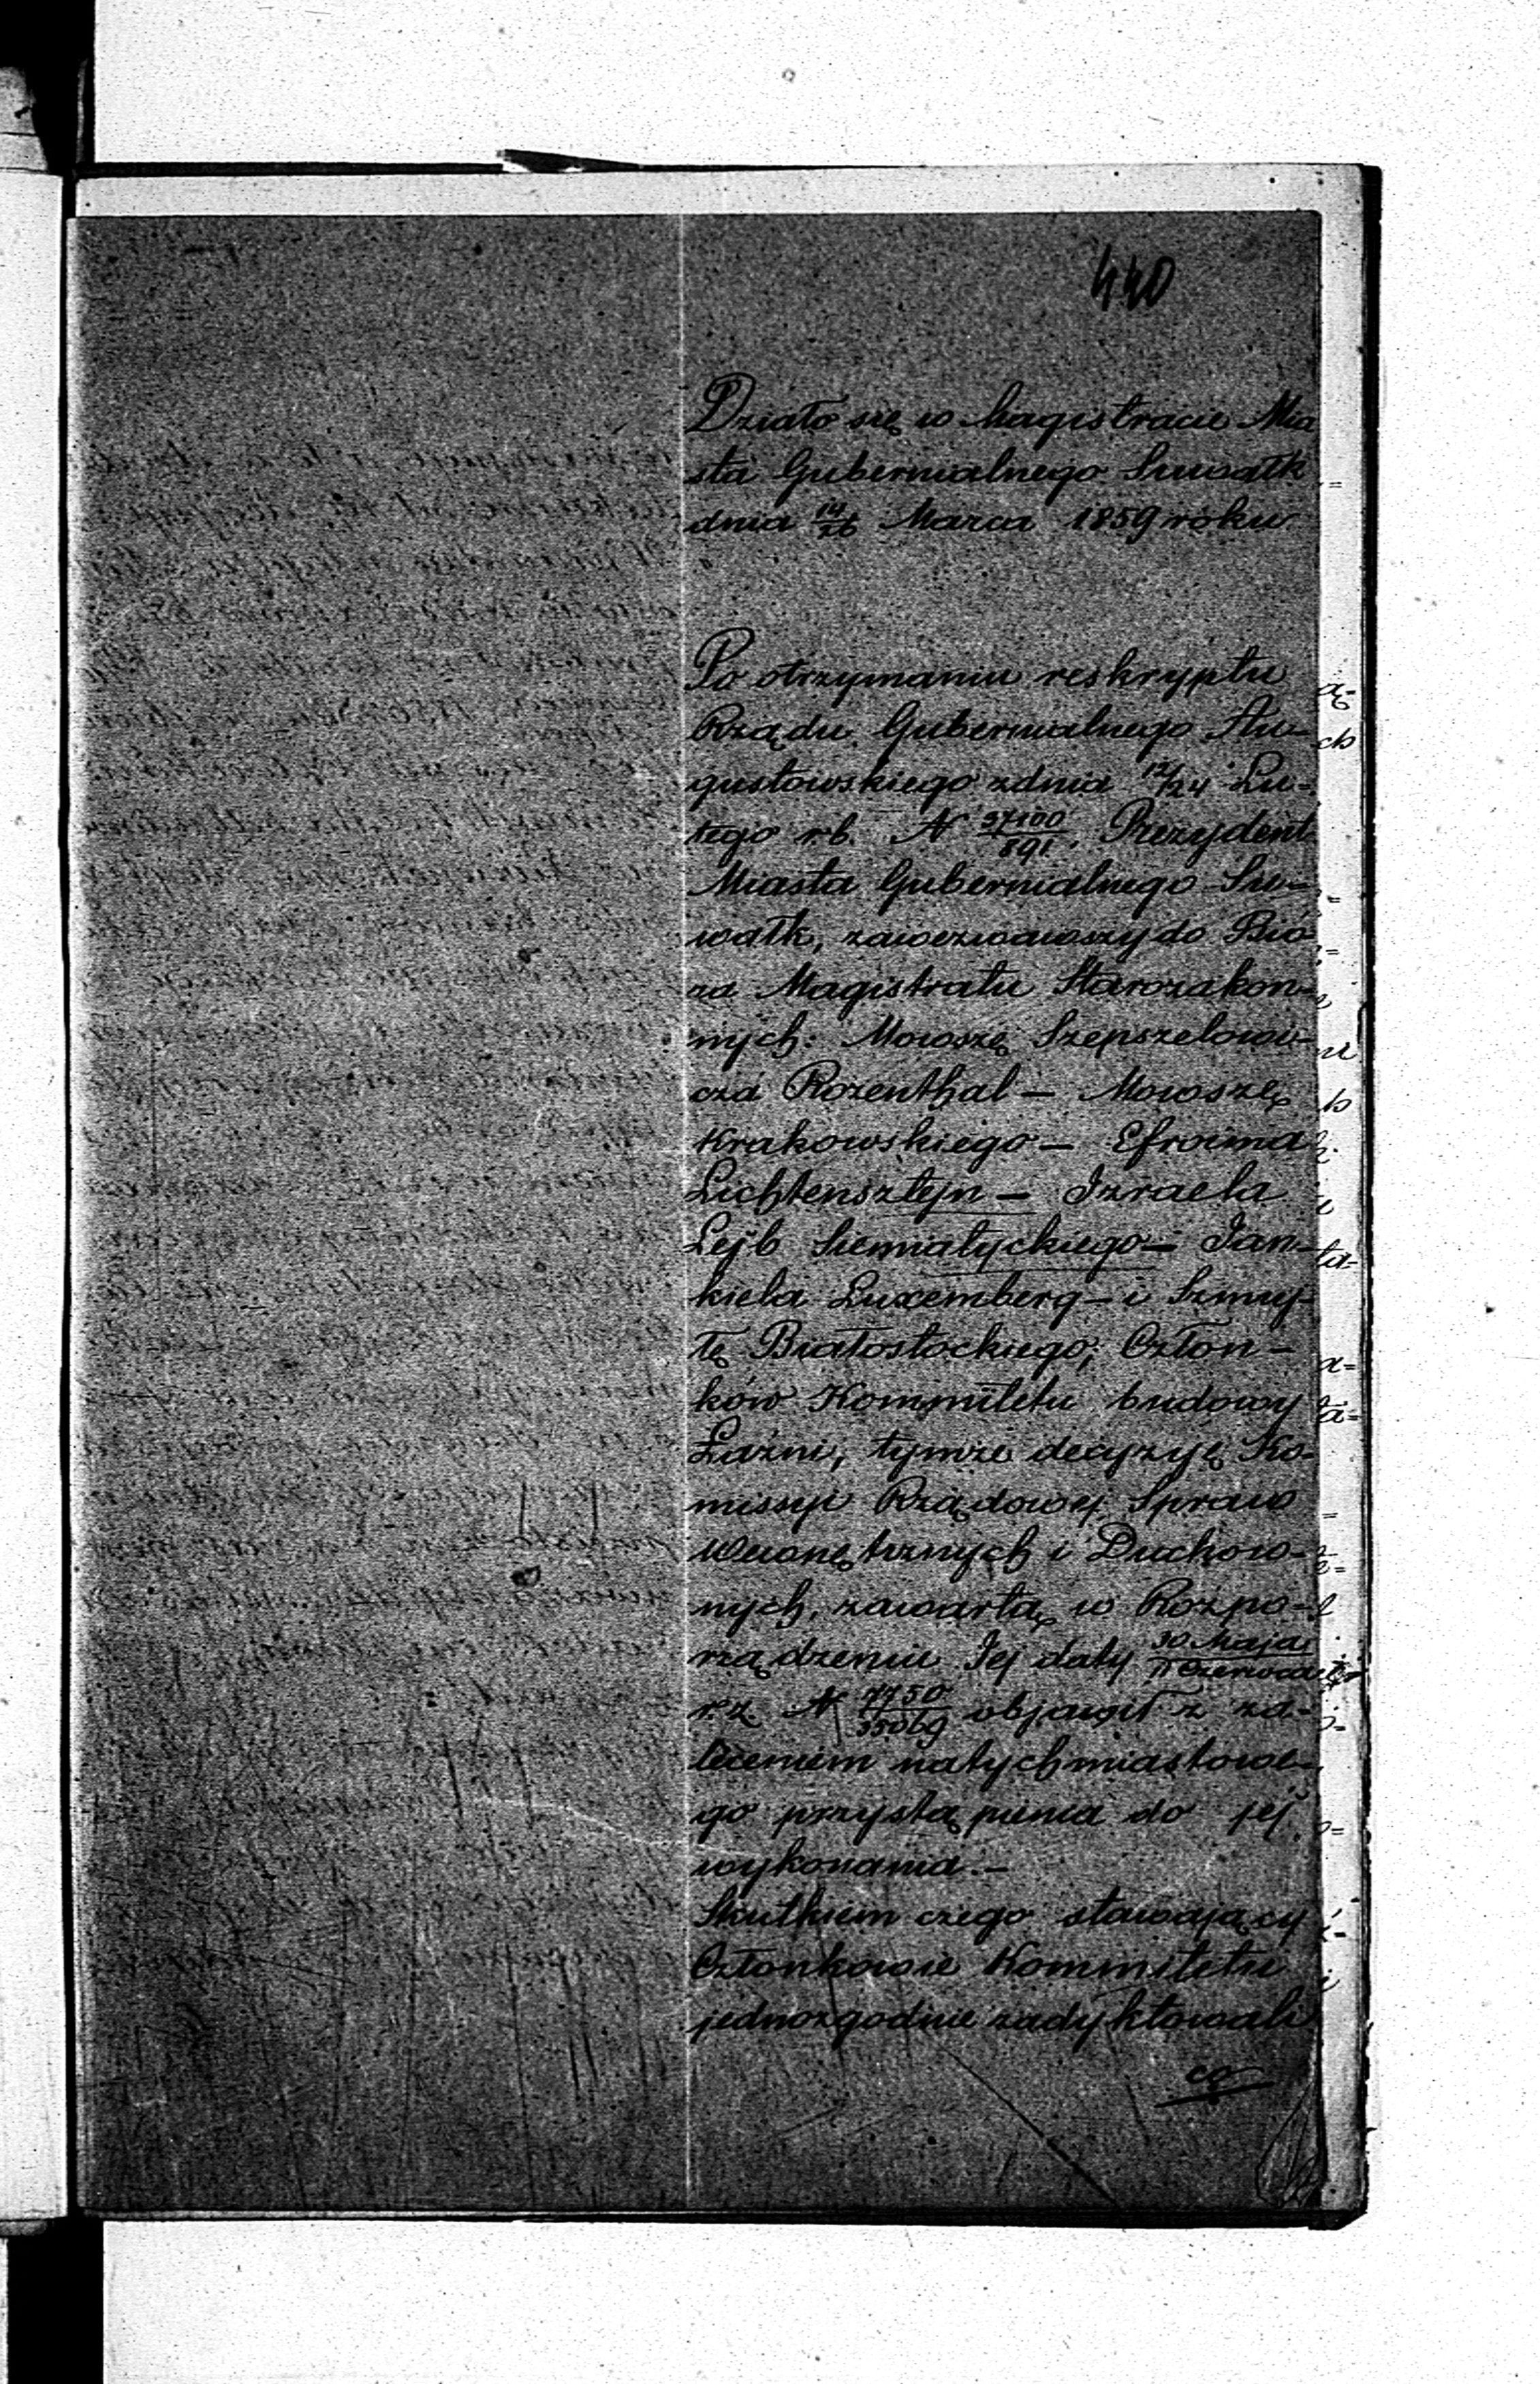 440
Działo się w Magistracie Mia
sta Gubernialnego Suwałk
dnia 14/26 Marca 1859 roku
Po otrzymaniu reskryptu
Rządu Gubernialnego Au-
gustowskiego z dnia 12/24 Lu-
tego r.b. N 37100/891. Prezydent
Miasta Gubernialnego Su-
wałk, zawezwawszy do Bió
ra Magistratu Starozakon-
nych: Mowszę Szepszelowi-
cza Rozenthal — Mowszę
Krakowskiego — Efroima
Lichtensztejn — Izraela
Lejb Siemiatyckiego — Jan-
kiela Luxemberg — i Szmuj-
łę Białostockiego; Człon-
ków Kommitetu budowy
Łaźni, tymże decyzyę Ko-
missyi Rządowej Spraw
Wewnętrznych i Duchow-
nych, zawartą w Rozpo-
rządzeniu Jej daty 30 Maja/11 Czerwca
r.z. N 7750/35069 objawił z za-
leceniem natychmiastowe-
go przystąpienia do jej
wykonania. —
Skutkiem czego stawający
Członkowie Kommitetu
jednozgodnie zadyktowali
co